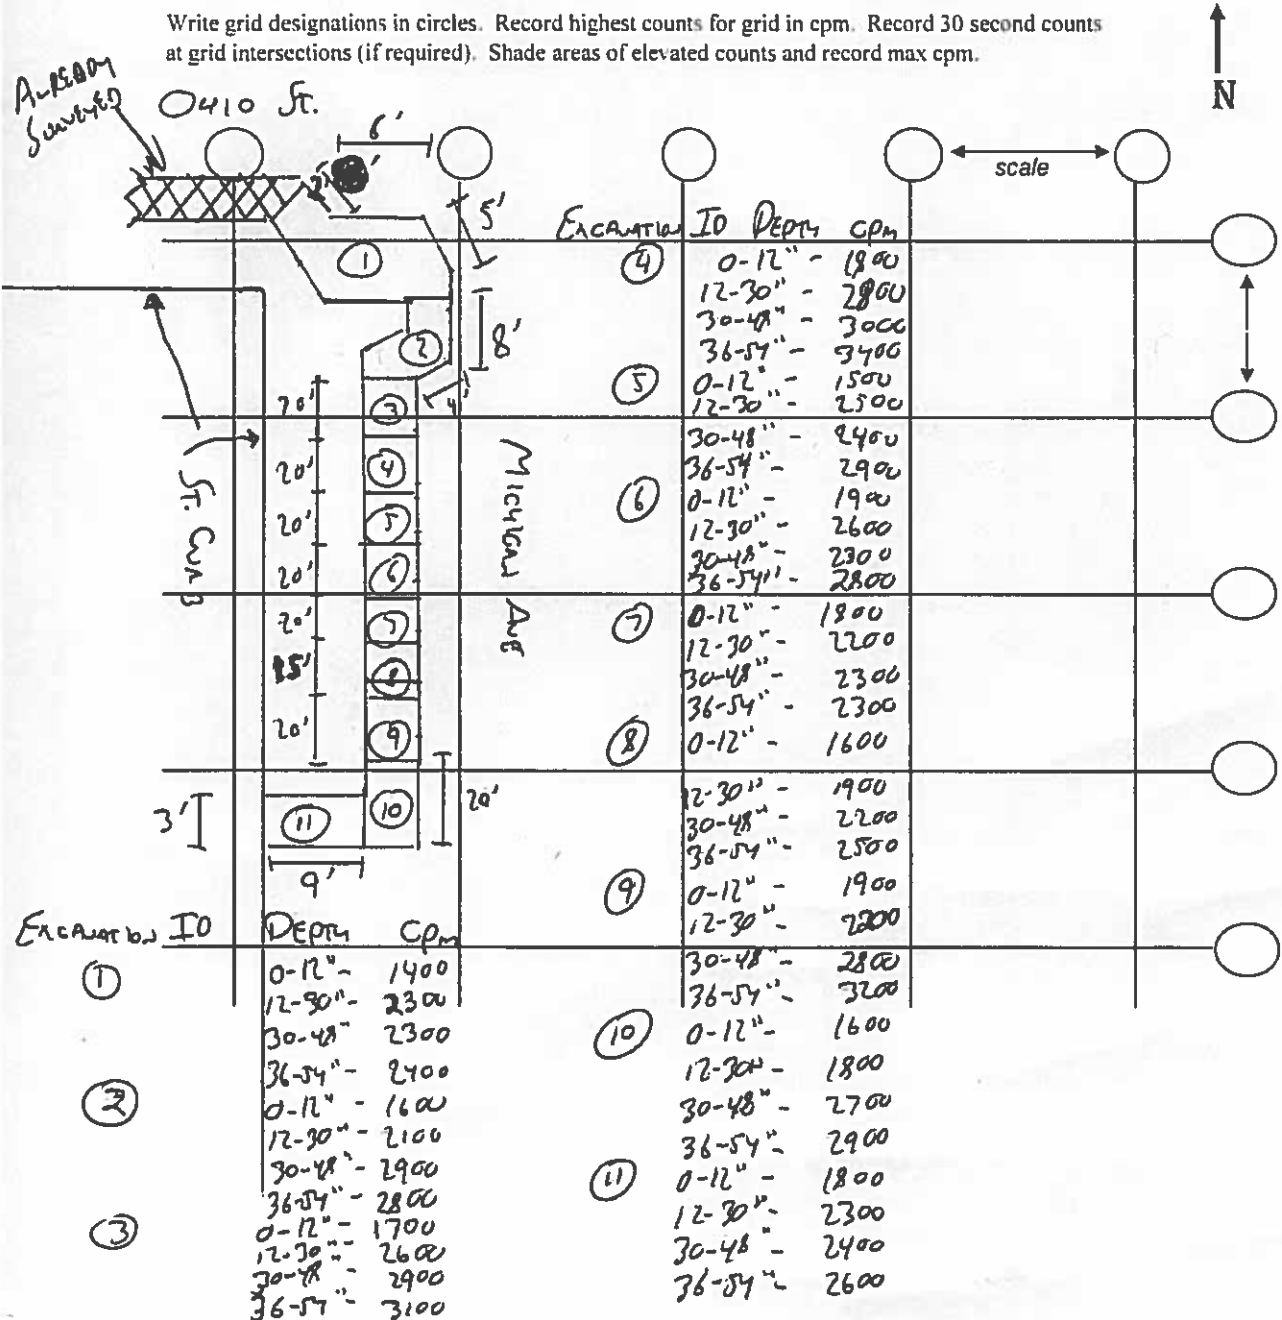 Write grid designations in circles. Record highest counts for grid in cpm. Record 30 second counts
at grid intersections (if required). Shade areas of elevated counts and record max cpm.
N
scale
ALREADY
SURVEYED
0410 ST.
6'
5'
8'
4'
1
2
3
4
5
6
7
8
9
10
11
20'
20'
20'
20'
20'
15'
20'
20'
3'
9'
ST. CURB
MICHIGAN AVE
EXCAVATION ID DEPTH CPM
1 0-12" - 1400
12-30" - 2300
30-48" 2300
36-54" - 2400
2 0-12" - 1600
12-30" - 2100
30-48" - 2900
36-54" - 2800
3 0-12" - 1700
12-30" - 2600
30-48" - 2900
36-54" - 3100
EXCAVATION ID DEPTH CPM
4 0-12" - 1800
12-30" - 2800
30-48" - 3000
36-54" - 3400
5 0-12" - 1500
12-30" - 2500
30-48" - 2400
36-54" - 2900
6 0-12" - 1900
12-30" - 2600
30-48" - 2300
36-54" - 2800
7 0-12" - 1800
12-30" - 2200
30-48" - 2300
36-54" - 2300
8 0-12" - 1600
12-30" - 1900
30-48" - 2200
36-54" - 2500
9 0-12" - 1900
12-30" - 2200
30-48" - 2800
36-54" - 3200
10 0-12" - 1600
12-30" - 1800
30-48" - 2700
36-54" - 2900
11 0-12" - 1800
12-30" - 2300
30-48" - 2400
36-54" - 2600